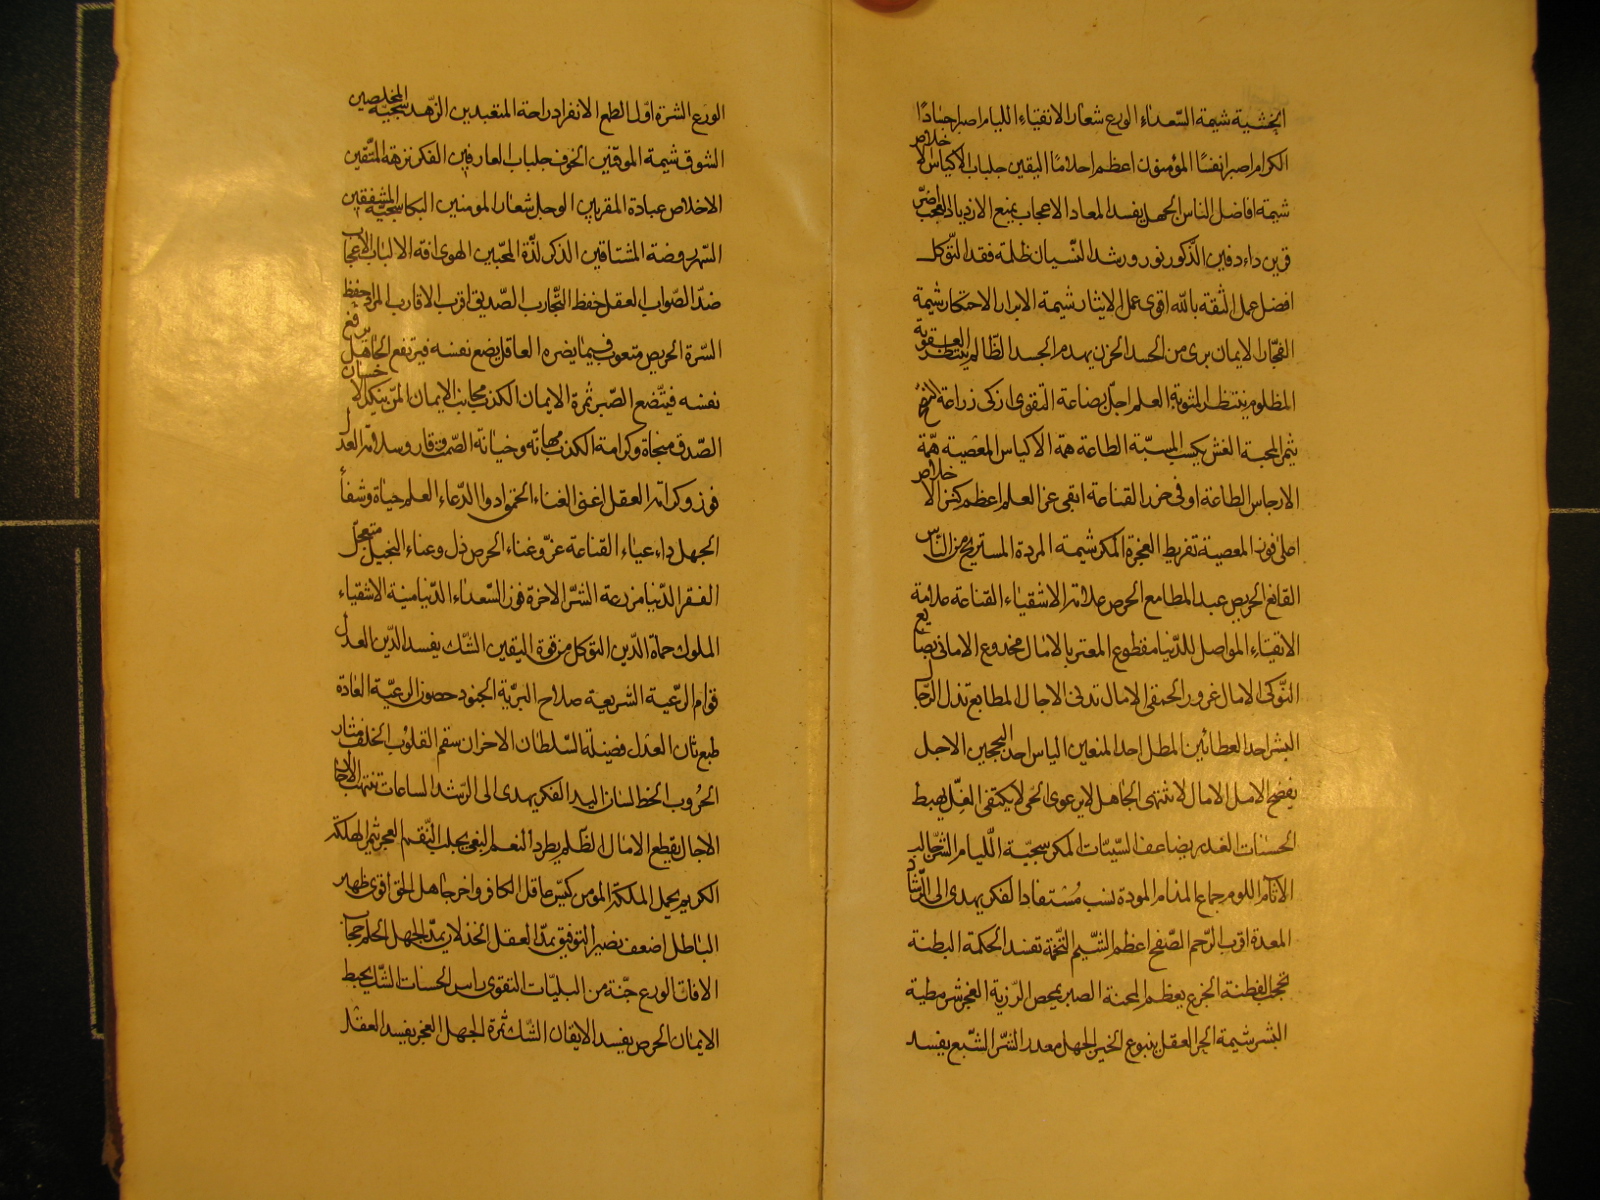 الخشية شيمة السّعداء الورع شعار الاتقياء اللیام اصبر اجسادًا
الكرام اصبر انفسًا المؤمنون اعظم احلامًا اليقين جلباب الاكياس الاخلاص
شيمة افاضل الناس الجهل يفسد المعاد الاعجاب يمنع الازدياد العجب
قرين داء دفين الذكور نور ورشد النّسيان ظلمة وفقد التّوكل
افضل عمل الثقة بالله اقوى عمل الايثار شيمة الابرار الاحتكار شيمة
الفجّار الايمان برى من الحسد الحزن يهدم الجسد الظّالم ينتظر العقوبة
المظلوم ينتظر المثوبة العلم اجلّ بضاعة التقوى ازكى زراعة
يثمر المحبة الغش يكسب المسبّة الطاعة همّة الاكياس المعصية همّة
الارجاس الطاعة اوفى حرز القناعة ابقى عز العلم اعظم كنز الاخلاص
اعلى فوز المعصية تفريط الفجرة المكر شيمة المردة المستريح من الناس
القانع الحريص عبد المطامع الحرص علامة الاشقياء القناعة علامة
الاتقياء المواصل للدّنيا مقطوع المغتر بالامال مخدوع الامانى بضايع
النّوكى الامال غرور الحمقى الامال تدنى الاجال المطامع تذل الرّجال
البشر احد العطائين المطل احد المنعين الياس احد النجحين الاجل
يفضح الامل الامال لا تنتهى الجاهل لا يرعوى الحى لا يكتفى الغل يحبط
الحسنات الغدر يضاعف السّيّات المكر سجيّة اللّيام الشرّ جالب
الآثام اللوم جماع المذام المودة نسب مستفاد الفكر يهدى الى الرّشاد
المودة اقرب الرّحم الصّفح اعظم الشّيم التّخمة تفسد الحكمة البطنة
تحجب الفطنة الجزع يعظم المحنة الصبر يمحص الرّزية العجز شر مطية
البشر شيمة الحر العقل ينبوع الخير الجهل معدن الشّر الشّبع يفسد
الورع الشره اوّل الطمع الانفراد راحة المتعبدين الزّهد سجيّة المخلصين
الشوق شيمة الموقنين الخوف جلباب العارفين الفكر نزهة المتّقين
الاخلاص عبادة المقربين الوجل شعار المومنين البكا سجيّة المشفقين
السّهر روضة المشتاقين الذكر لذّة المحبّين الهوى افة الالباب الاعجاب
ضدّ الصّواب العقل حفظ التّجارب الصّديق اقرب الاقارب المراد حفظ
السّرة الحريص متعوب فيما يضره العاقل يضع نفسه فيرتفع الجاهل يرفع
نفسه فيتّضع الصّبر ثمرة الايمان الكذب مجانب الايمان المنّ ينكد الاحسان
الصّدق منجاة وكرامة الكذب مهانة وخيانة الصّمت وقار وسلامة العدل
فوز وكرامة العقل اغنى الغناء الحمق ادوا الدّاء العلم حياة وشفاء
الجهل داء عياء القناعة عزّ وغناء الحرص ذل وعناء البخيل متعجّل
الفقر الدّنيا مزرعة الشرّ الاخرة فوز السّعداء الدّنيا منية الاشقياء
الملوك حماة الدّين التوكل من قوة اليقين الشّك يفسد الدّين العدل
قوام الرّعية الشريعة صلاح البريّة الجنود حصون الرعيّة العادة
طبع ثان العدل فضيلة السّلطان الاحزان سقم القلوب الخلف مثار
الحروب الخط لسان اليد الفكر يهدى الى الرّشد الساعات تنتهب الاجال
الاجال تقطع الامال الظّلم يطرد النعم البغى يجلب النّقم العجز يثمر الهلكة
الكريم يحمل الملكة المومن كيّس عاقل الكافر فاجر جاهل الحق اقوى ظهير
الباطل اضعف نصير التوفيق يمدّ العقل الخذلان يمدّ الجهل الحلم حجاب
الافات الورع جنّة من البليّات التقوى راس الحسنات الشك يحبط
الايمان الحرص يفسد الايقان الشّك ثمرة الجهل العجز يفسد العقل